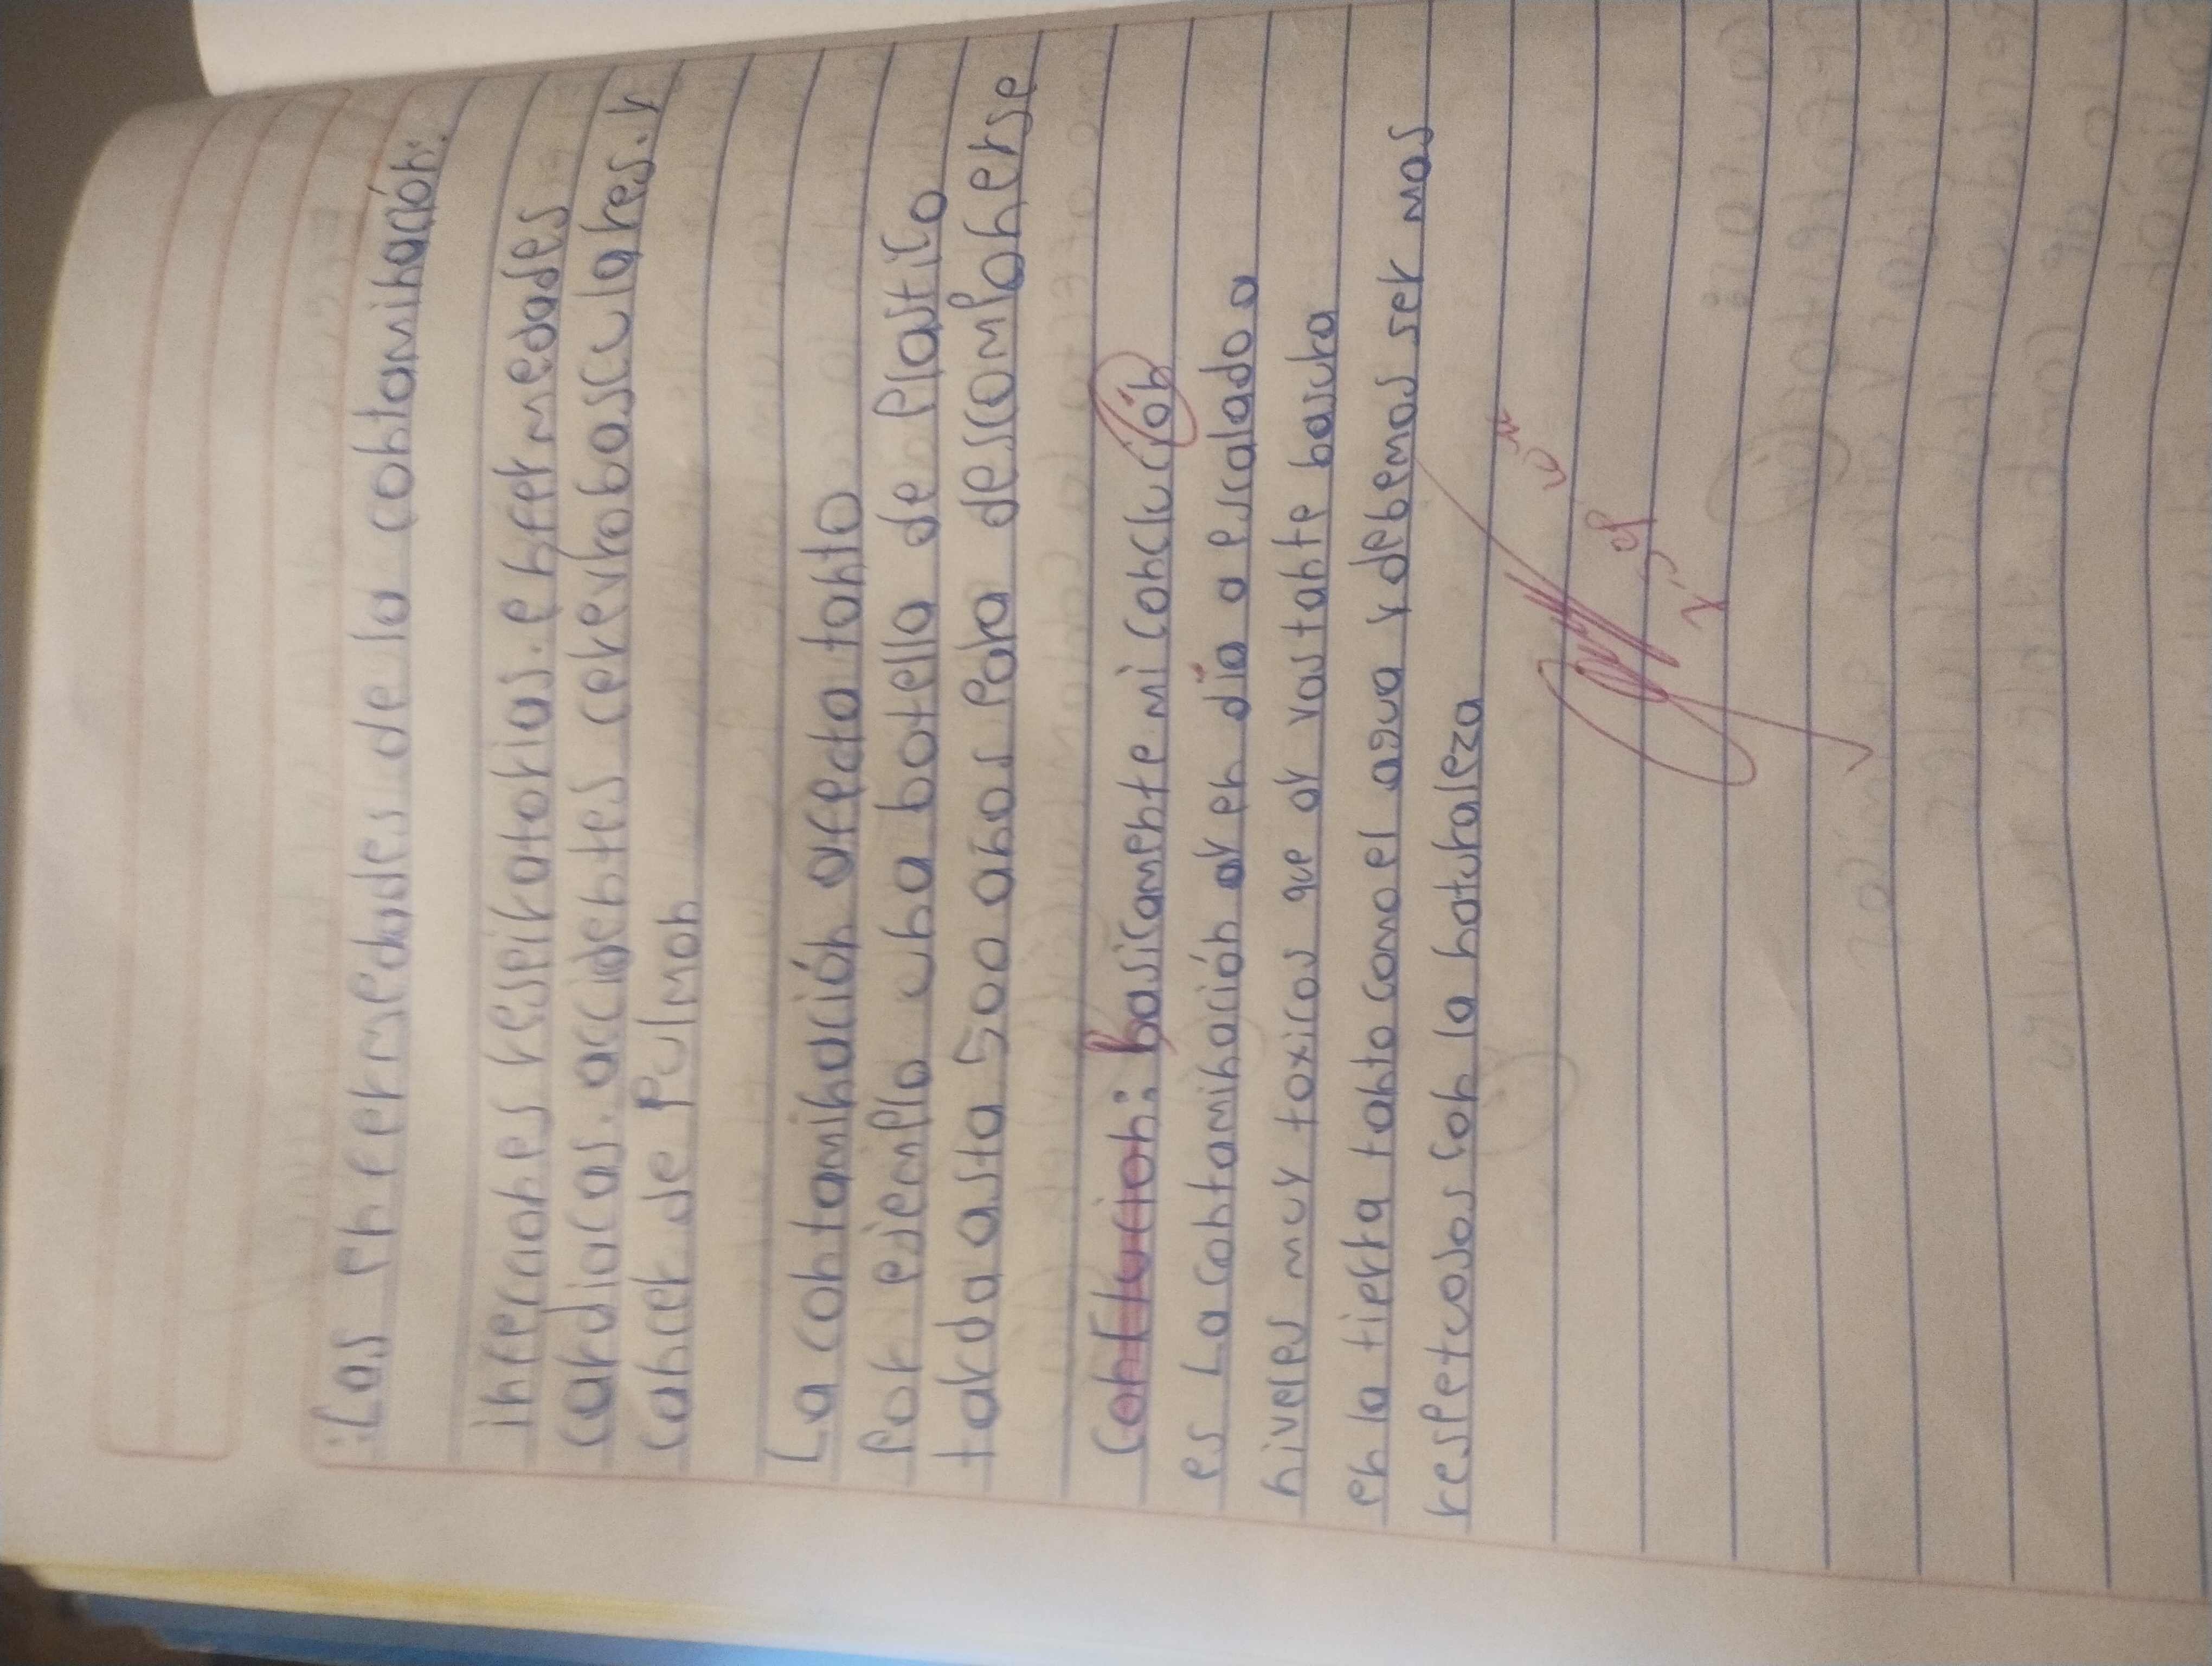 :Las enfermedades de la contaminación:
infecciones respiratorias. enfermedades
cardiacas. accidentes cerevrobasculares. y
cancer de Pulmon
La contaminación afecta tanto
Por ejemplo una botella de Plastico
tarda asta 500 años Para descomponerse
Conclucion: basicamente mi conclución
es La contaminación ay en día a escalado a
niveles muy toxicos que ay vastante basura
en la tierra tanto como el agua y debemos ser mas
respetuosos con la naturaleza